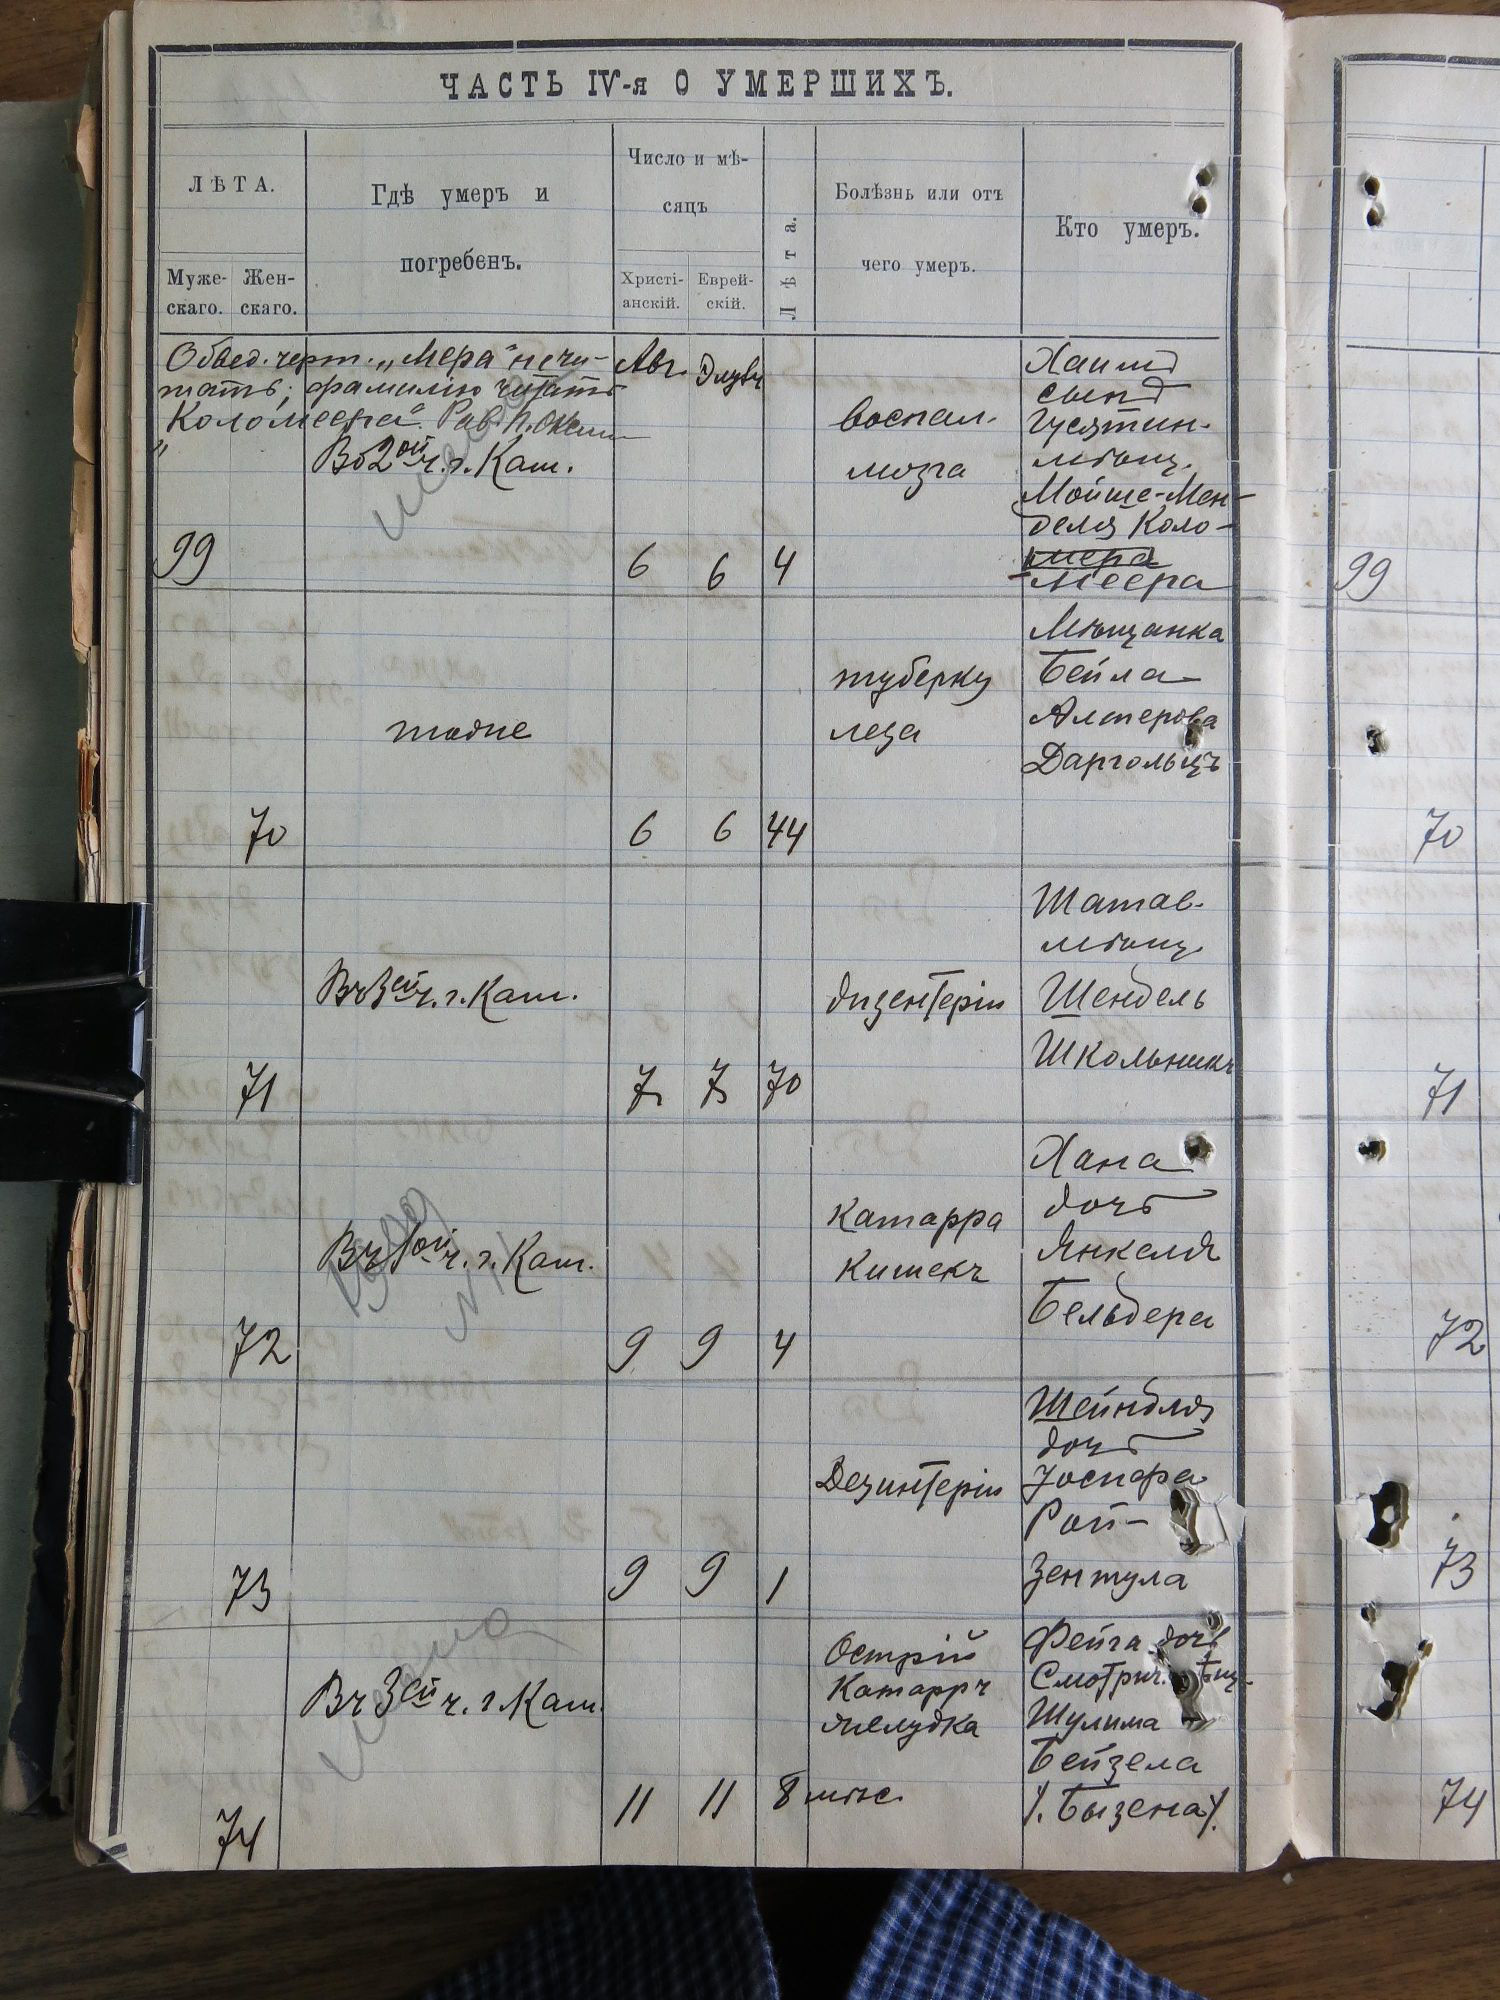 ЧАСТЬ IV-я О УМЕРШИХЪ.
ЛѢТА.
Мужескаго.
Женскаго.
Гдѣ умеръ и
погребенъ.
Число и мѣ-
сяцъ
Христі-
анскій.
Еврей-
скій.
Лѣта.
Болѣзнь или отъ
чего умеръ.
Кто умеръ.
Обвед. черт. „Мера" не чи-
тать; фамилію читать
Коломеера". Рав. П.
Авг. Элулъ
Во 2ой ч. г. Кам.
воспал.
мозга
Хаимъ
сынъ
Гусятин.
мѣщ.
Мойше-Мен-
деля Коло-
мера
-меера
99
6 6 4
99
тоже
туберку
леза
Мѣщанка
Бейла
Алтерова
Даргольцъ
70
6 6 44
70
Въ 3ей ч. г. Кам.
дизентеріи
Шатав.
мѣщ.
Шендель
Школьникъ
71
7 7 70
71
Въ 1ой ч. г. Кам.
Катарра
Кишекъ
Хана
дочь
Янкеля
Бельдера
72
9 9 4
72
Дезинтеріи
Шейндля
дочь
Іосифа
Рой-
зентула
73
9 9 1
73
Въ 3ей ч. г. Кам.
Острій
Катарръ
желудка
Фейга дочь
Смотрич.
Шулима
Бейзела
/. Бызена /.
74
11 11 8 мѣс.
74